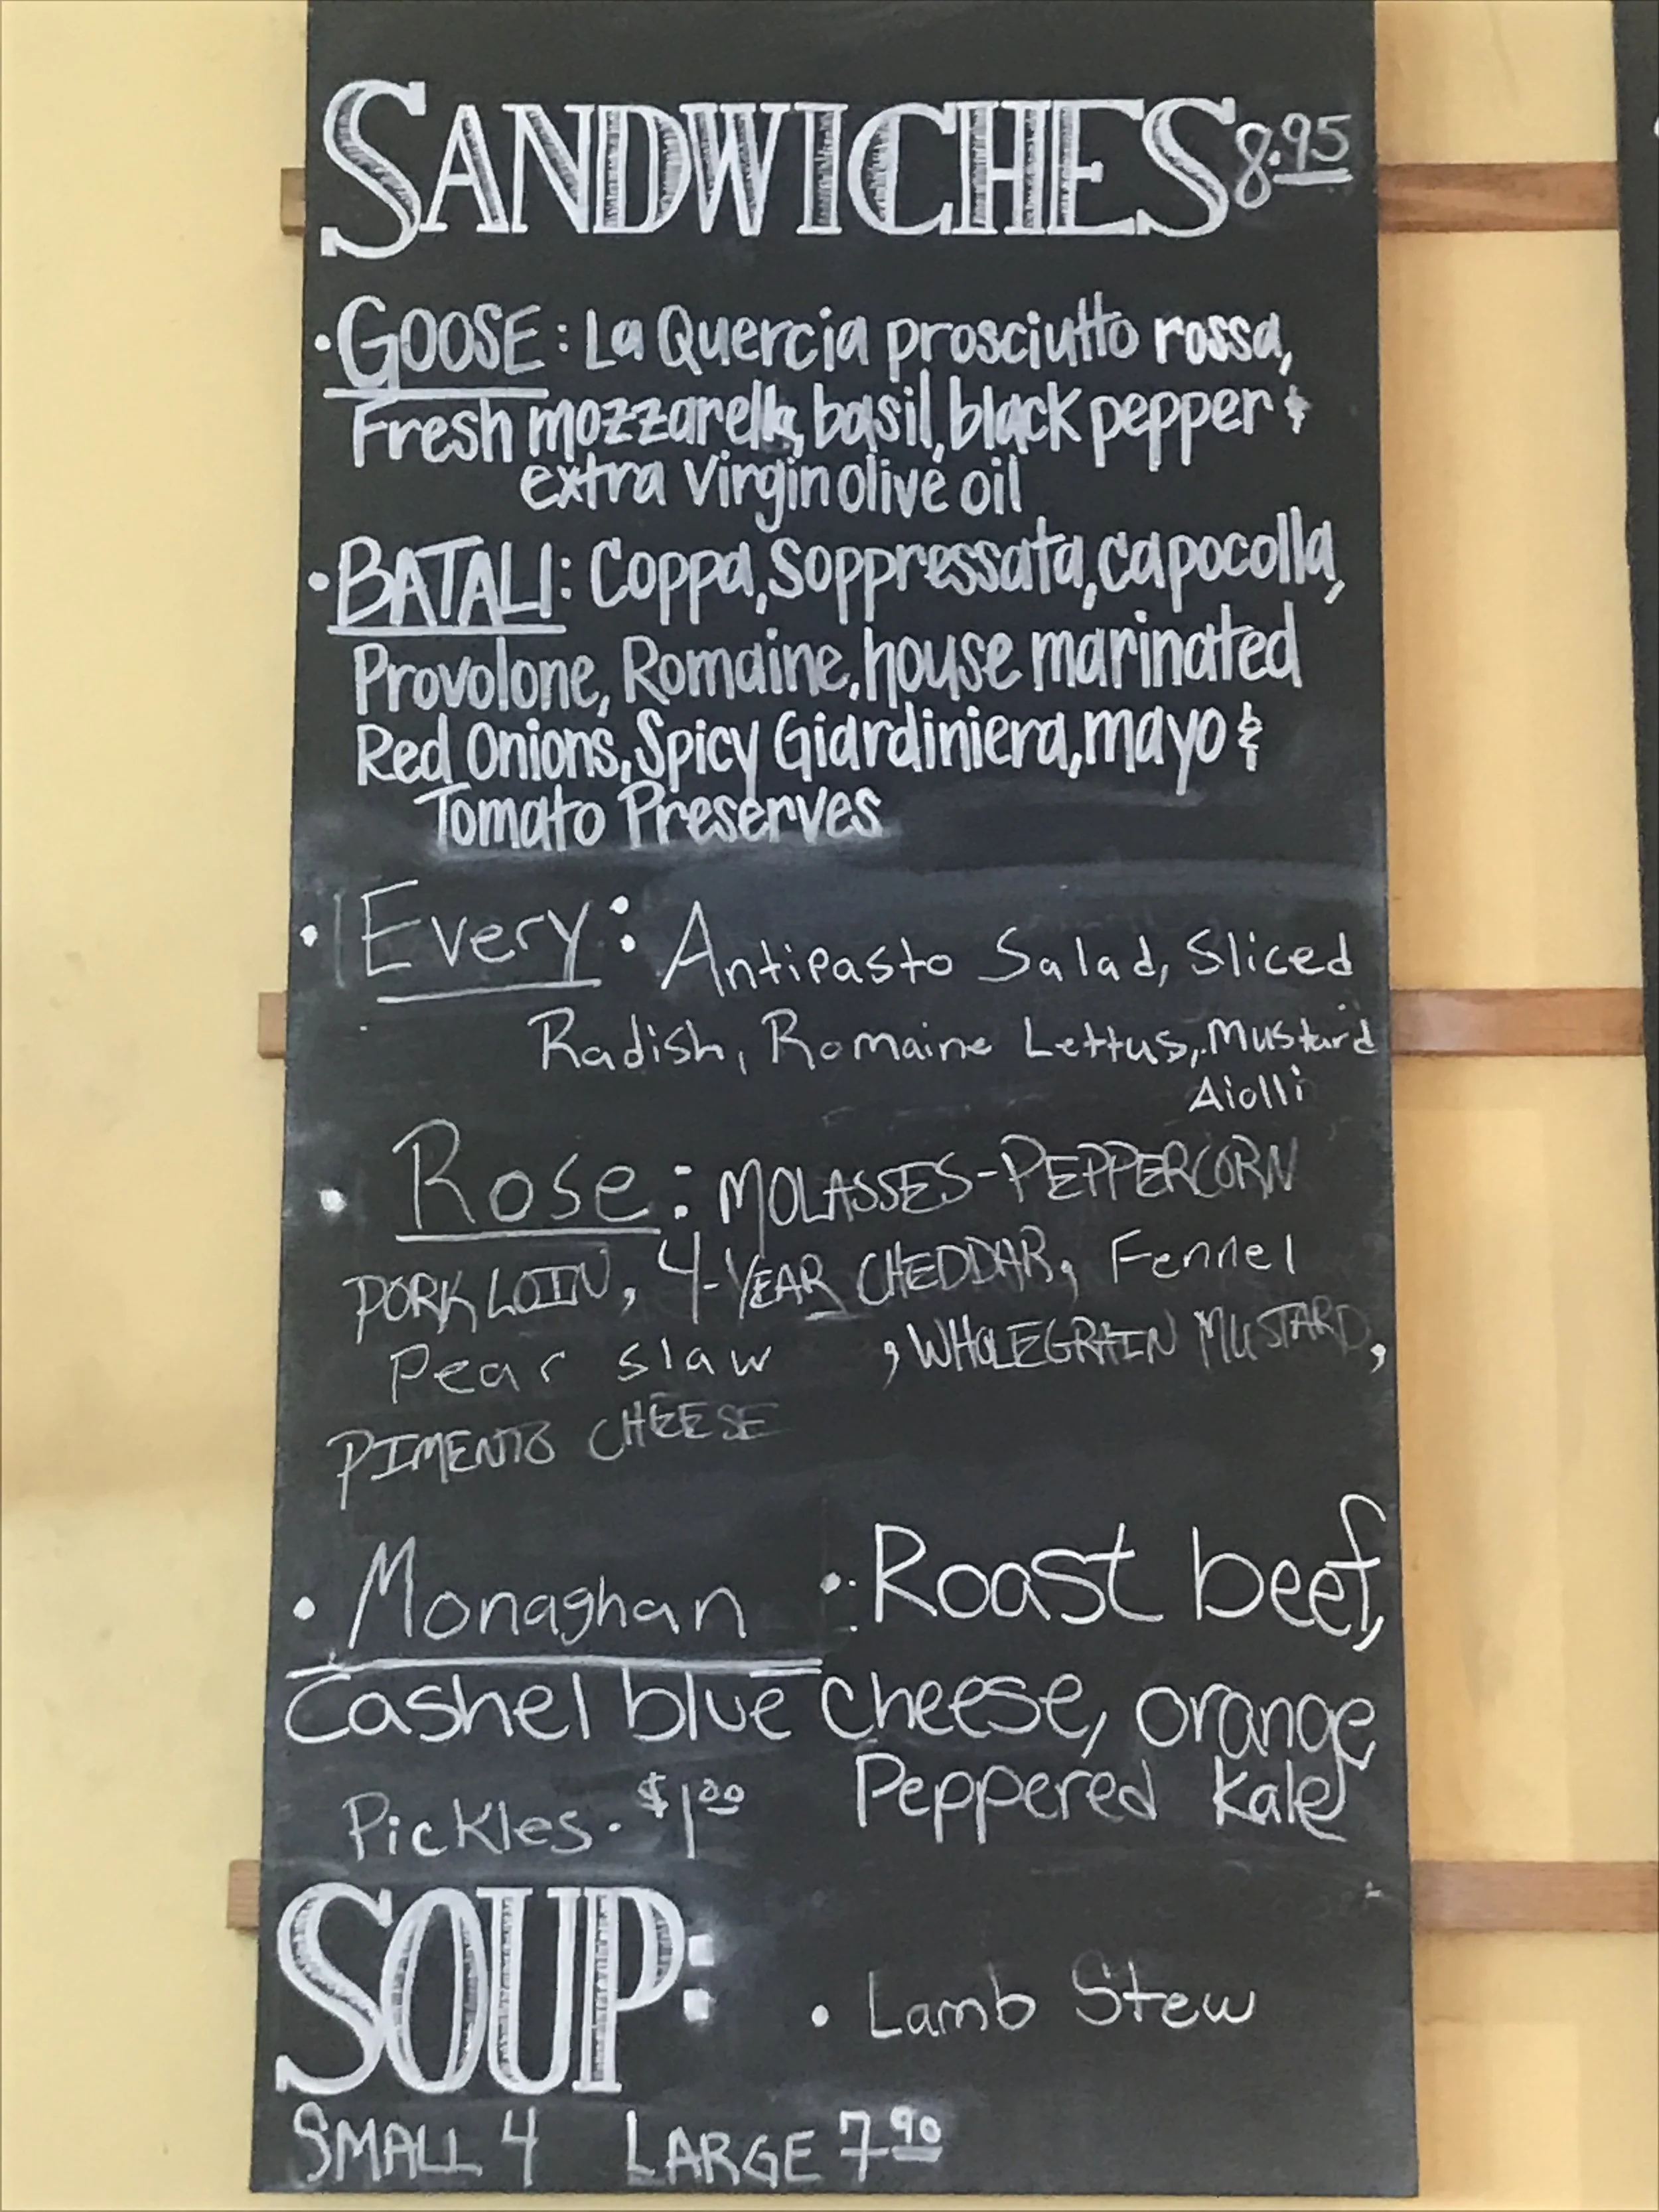 SANDWICHES 8.95
• GOOSE: La Quercia prosciutto rossa,
Fresh mozzarella, basil, black pepper &
extra Virgin olive oil
• BATALI: Coppa, Soppressata, capocolla,
Provolone, Romaine, house marinated
Red Onions, Spicy Giardiniera, mayo &
Tomato Preserves
• Every: Antipasto Salad, Sliced
Radish, Romaine Lettus, Mustard
Aiolli
• Rose: MOLASSES-PEPPERCORN
PORK LOIN, 4-YEAR CHEDDAR, Fennel
Pear slaw , WHOLEGRAIN MUSTARD,
PIMENTO CHEESE
• Monaghan : Roast beef,
Cashel blue cheese, orange
Peppered Kale
Pickles. $1.00
SOUP: • Lamb Stew
SMALL 4 LARGE 7.90